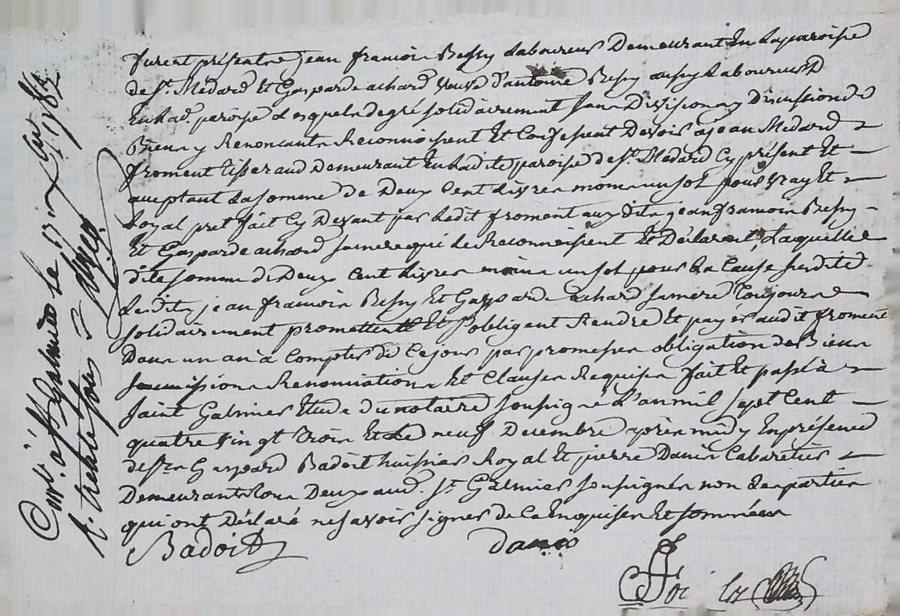 furent présents jean francois Bessy Laboureur Demeurant En La paroise
de St. Médard Et Gasparde achard veuve d'antoine Bessy aussy Laboureur D
En Lad. paroise Lesquels de gré solidairement sans Division ny Discussion de
Biens y Renoncants Reconnoissent Et Confessent Devoir a jean Médard
froment tisserand Demeurant En Ladite paroise de St. Médard Cy présent Et
acceptant La somme de Deux Cent Livres moins un sol pour vray Et
Loyal prêt fait Cy Devant par Ledit froment auxdits jean francois Bessy
Et Gasparde achard sa mere qui Le Reconnoissent Et Déclarent, Laquelle
dite somme de Deux Cent Livres moins un sol pour La Cause susdite
Lesdits jean francois Bessy Et Gasparde achard sa mere Toujours
solidairement promettent Et s'obligent Rendre Et payer audit froment
Dans un an a Compter de Ce jour par promesse obligation de Biens
soumissions Renonciations Et Clauses Requises fait Et passé à
saint Galmier Etude du notaire soussigné L'an mil sept Cent
quatre vingt trois Et Le neuf Décembre après midy En présence
de sr. Gaspard Badoit huissier Royal Et pierre Danis Cabaretier
Demeurants tous Deux aud. St. Galmier soussignés non Les parties
qui ont Déclaré ne savoir signer de Ce Enquises Et sommées
Badoit
St. Galmier Le